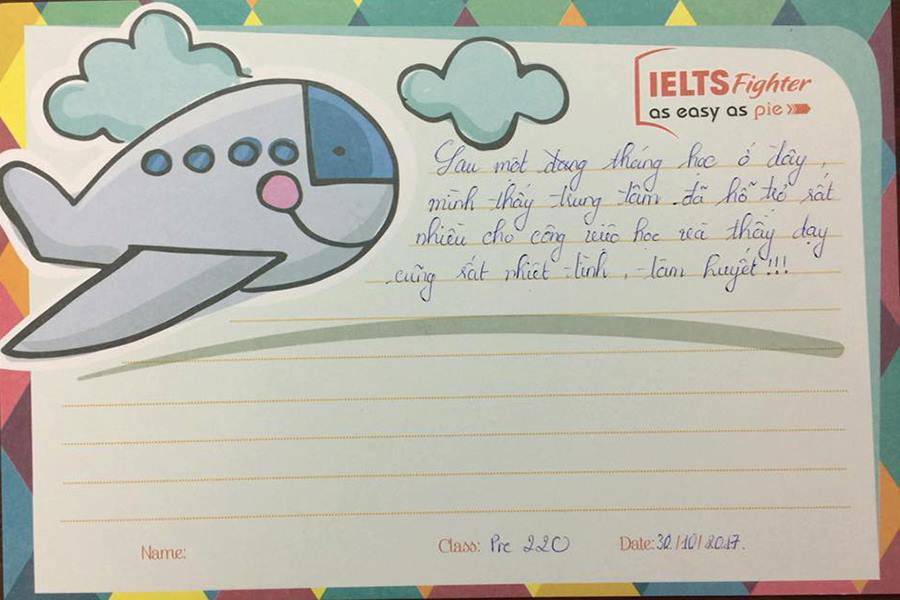 IELTS Fighter
as easy as pie
Sau một tháng học ở đây,
mình thấy trung tâm đã hỗ trợ rất
nhiều cho công việc học và thầy dạy
cũng rất nhiệt tình, tâm huyết!!!
Name:
Class: Pre 220
Date: 30/10/2017.